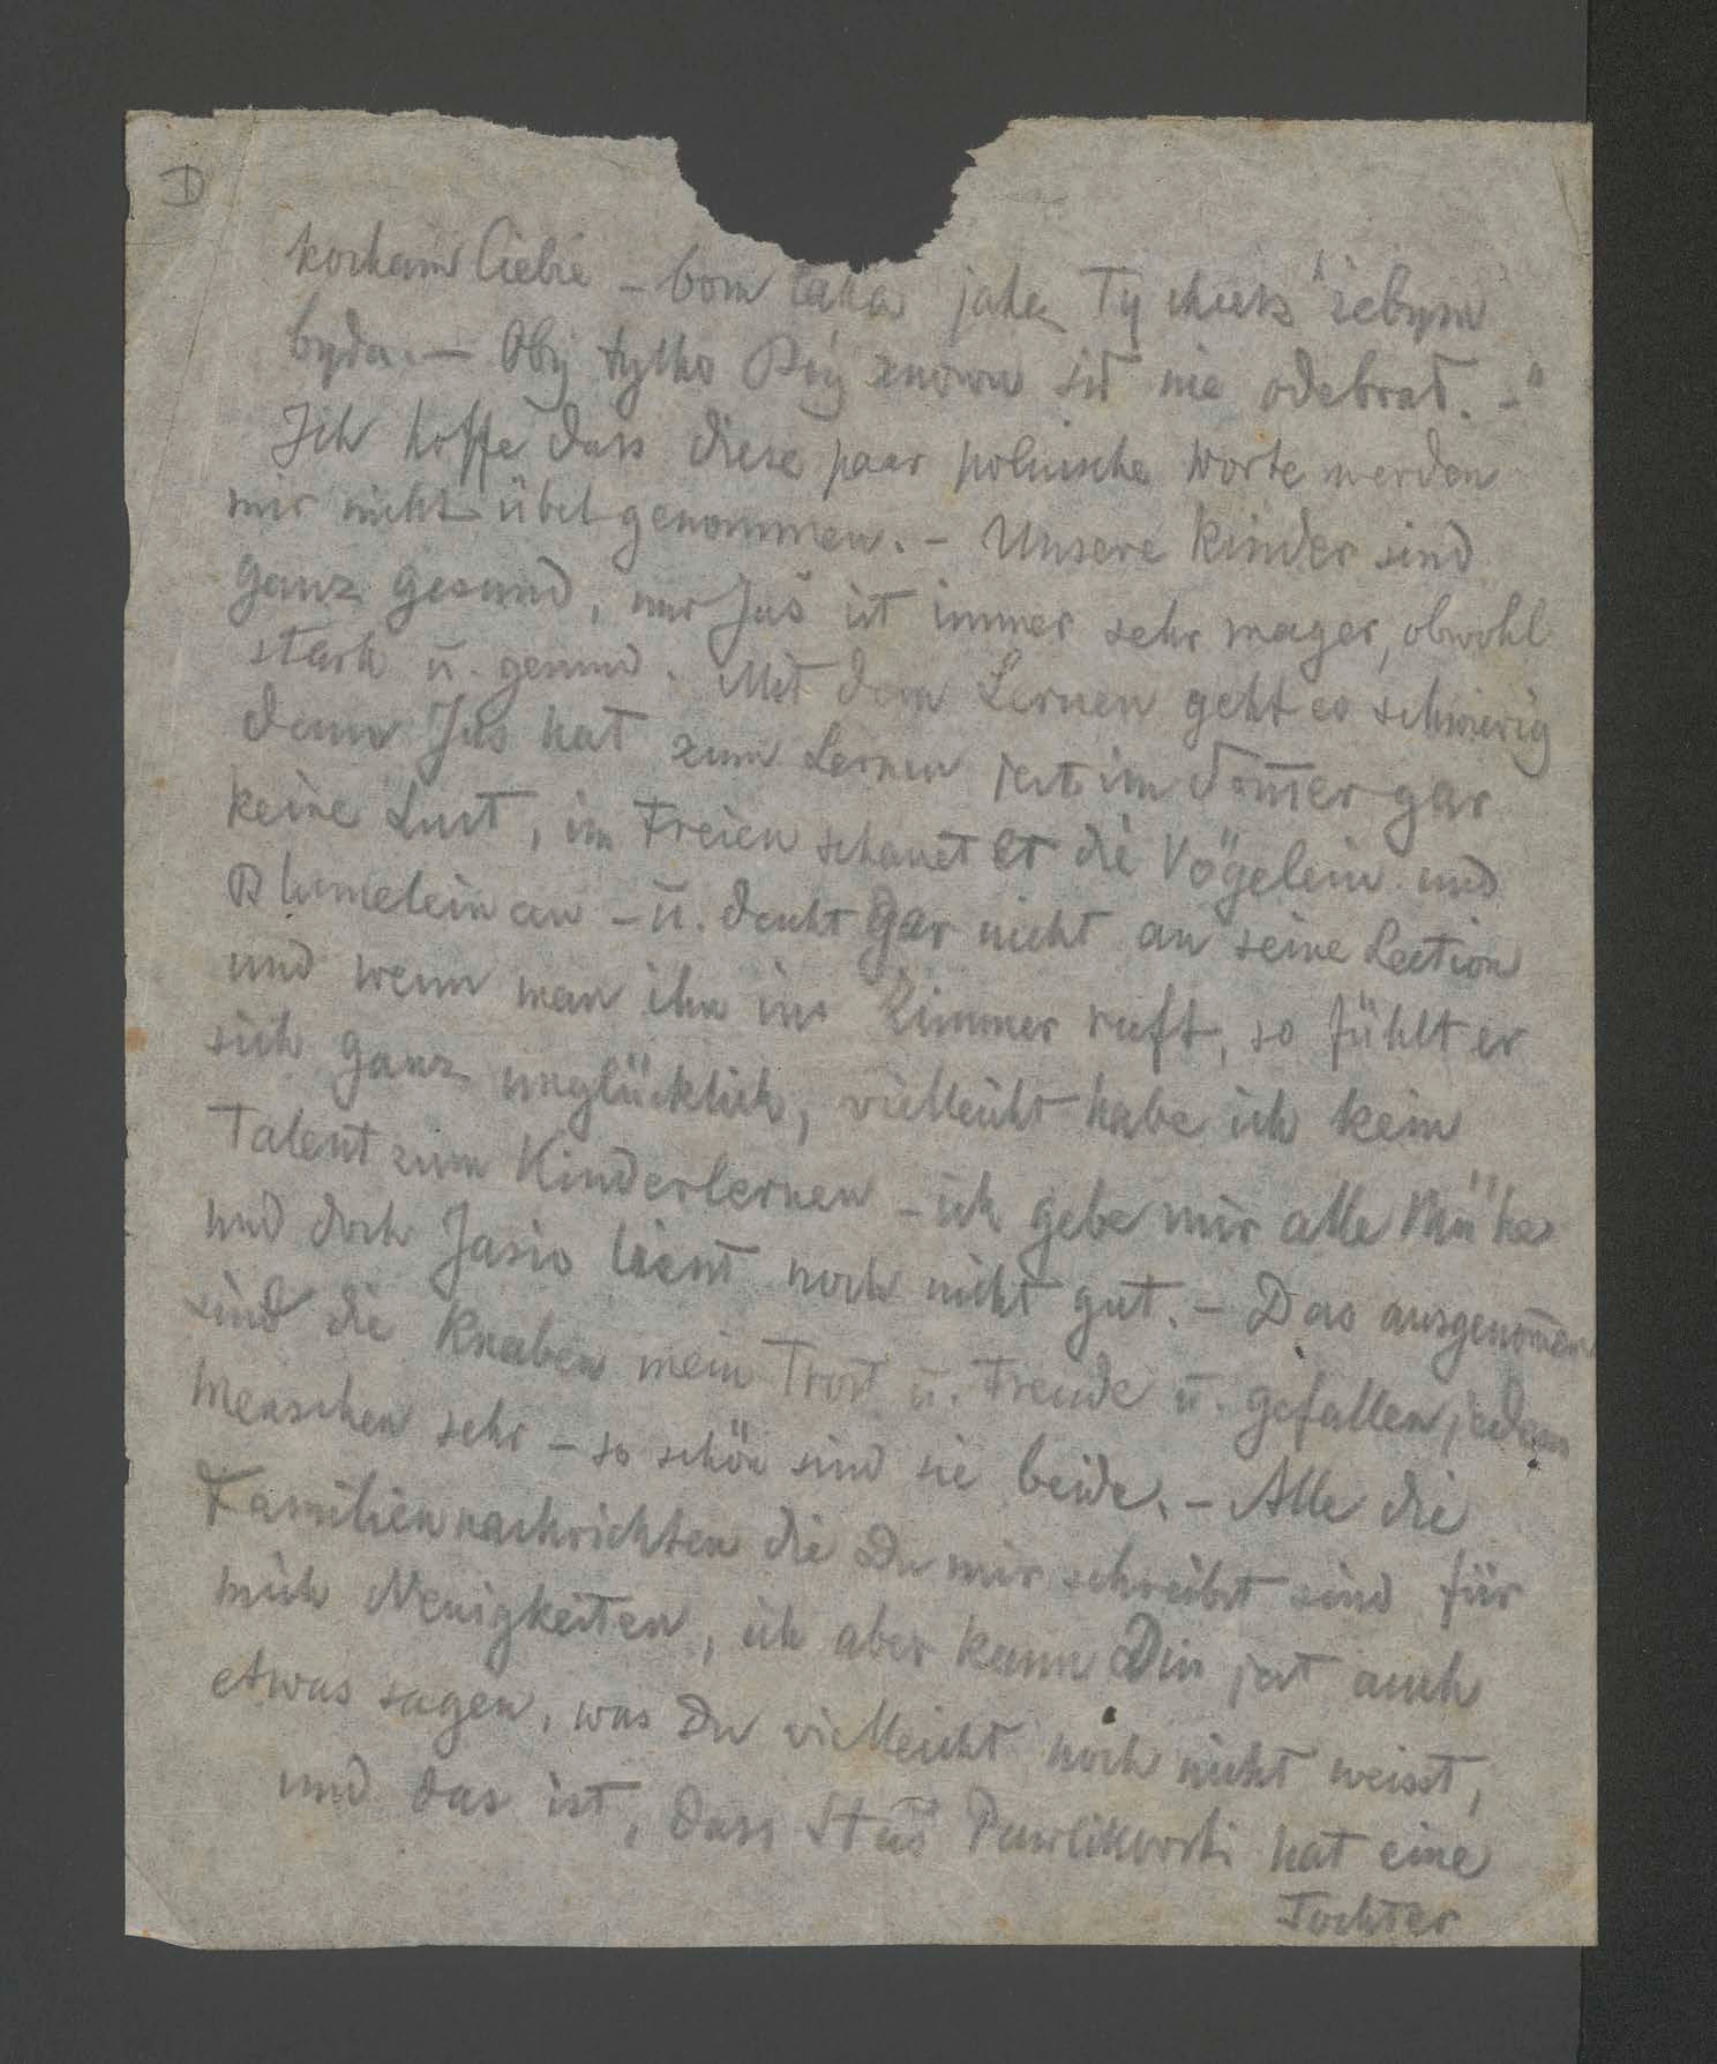 D
kocham Ciebie – bom taka jaką Ty chcesz żebym
była. – Oby tylko Bóg znowu sił nie odebrał. –"
Ich hoffe dass diese paar polnische Worte werden
mir nicht übel genommen. – Unsere Kinder sind
ganz gesund, nur Jaś ist immer sehr mager, obwohl
stark u. gesund. Mit dem Lernen geht es schwierig
denn Jaś hat zum Lernen jetz im Som̄er gar
keine Lust, im Freien schauet er die Vögelein und
Blumelein an – u. denkt gar nicht an seine Lection
und wenn man ihn ins Zimmer ruft, so fühlt er
sich ganz unglücklich, vielleicht habe ich kein
Talent zum Kinderlernen – ich gebe mir alle Mühe
und doch Jasio liest noch nicht gut. – Das ausgenom̄en
sind die Knaben mein Trost u. Freude u. gefallen jedem
Menschen sehr – so schön sind sie beide. – Alle die
Familiennachrichten die Du mir schreibst sind für
mich Neuigkeiten, ich aber kann Dir jetz auch
etwas sagen, was Du vielleicht noch nicht weisst,
und das ist, dass Staś Pawlikowski hat eine
Tochter